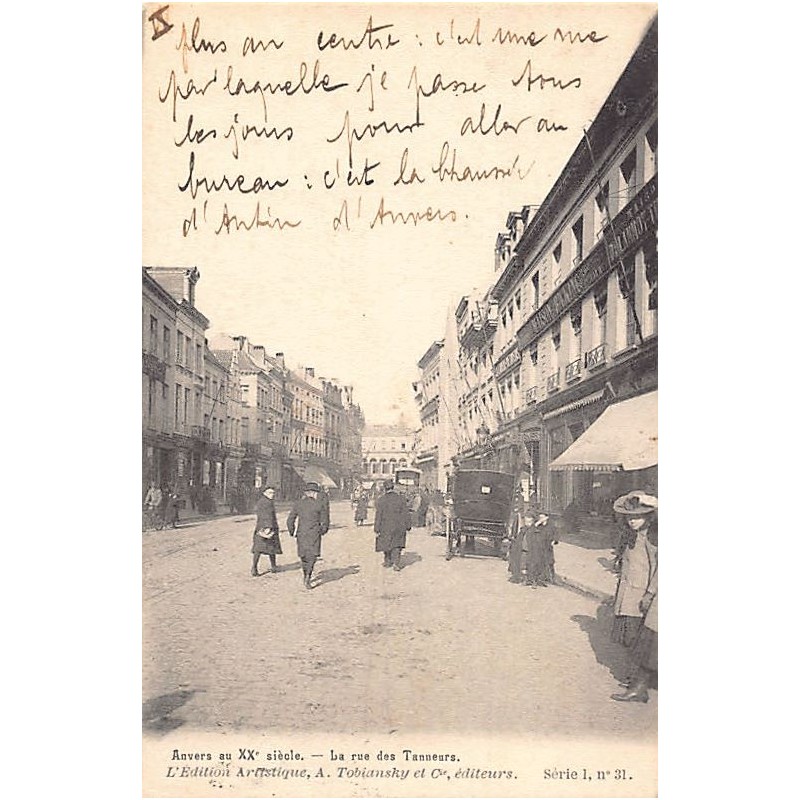 II
plus au centre : c'est une rue
par laquelle je passe tous
les jours pour aller au
bureau : c'est la Chaussée
d'Antin d'Anvers.
Anvers au XXe siècle. — La rue des Tanneurs.
L'Édition Artistique, A. Tobiansky et Cie, éditeurs. Série 1, n° 31.